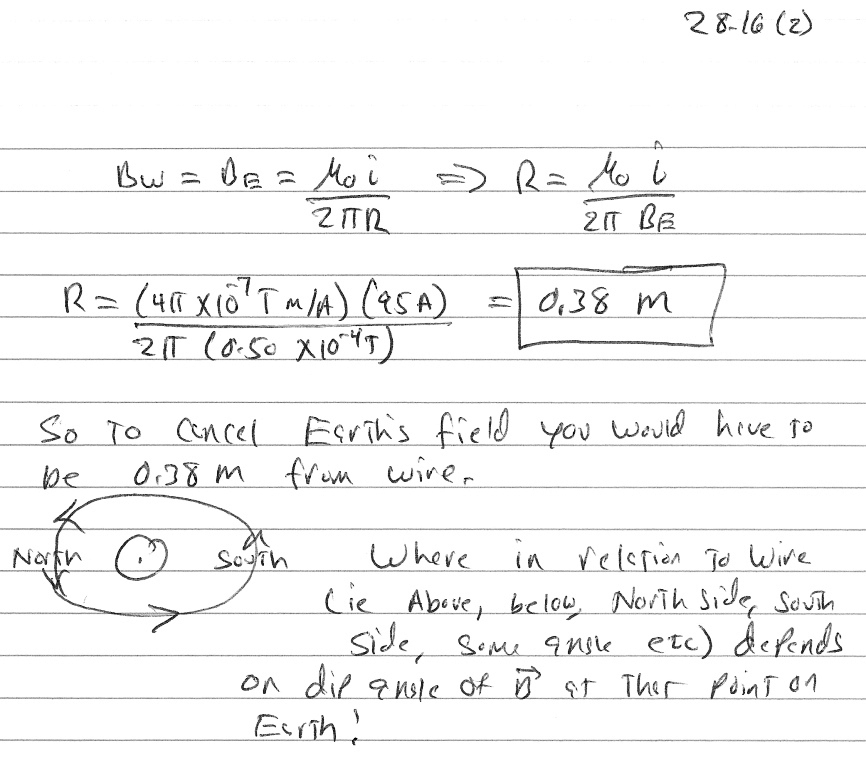 28-16 (2)
Bw = BE = μ₀ i / 2πR ⇒ R = μ₀ i / 2π BE
R = (4π × 10⁻⁷ T m/A) (95 A) / 2π (0.50 × 10⁻⁴ T) = 0.38 m
So To cancel Earth's field you would have to
be 0.38 m from wire.
North South Where in relation To wire
(ie Above, below, North side, South
side, some angle etc) depends
on dip angle of B⃗ at That Point on
Earth!